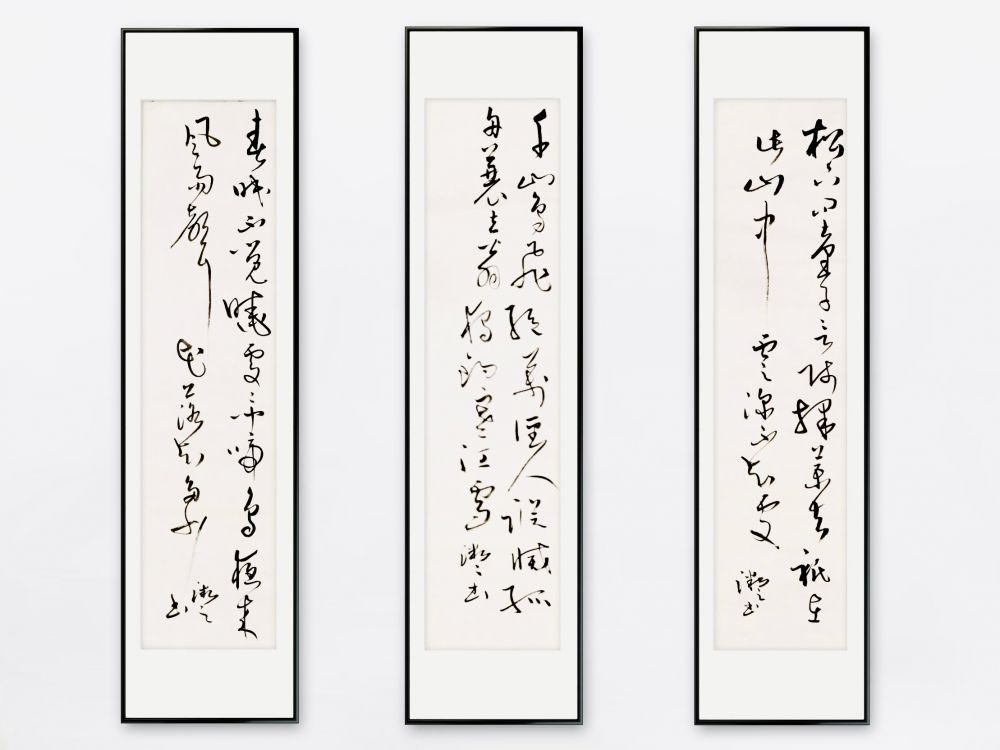 松下問童子言師採藥去祇在
此山中雲深不知處
書
千山鳥飛絕萬徑人蹤滅孤
舟蓑笠翁獨釣寒江雪
書
春眠不覺曉處々聞啼鳥夜來
風雨聲花落知多少
書